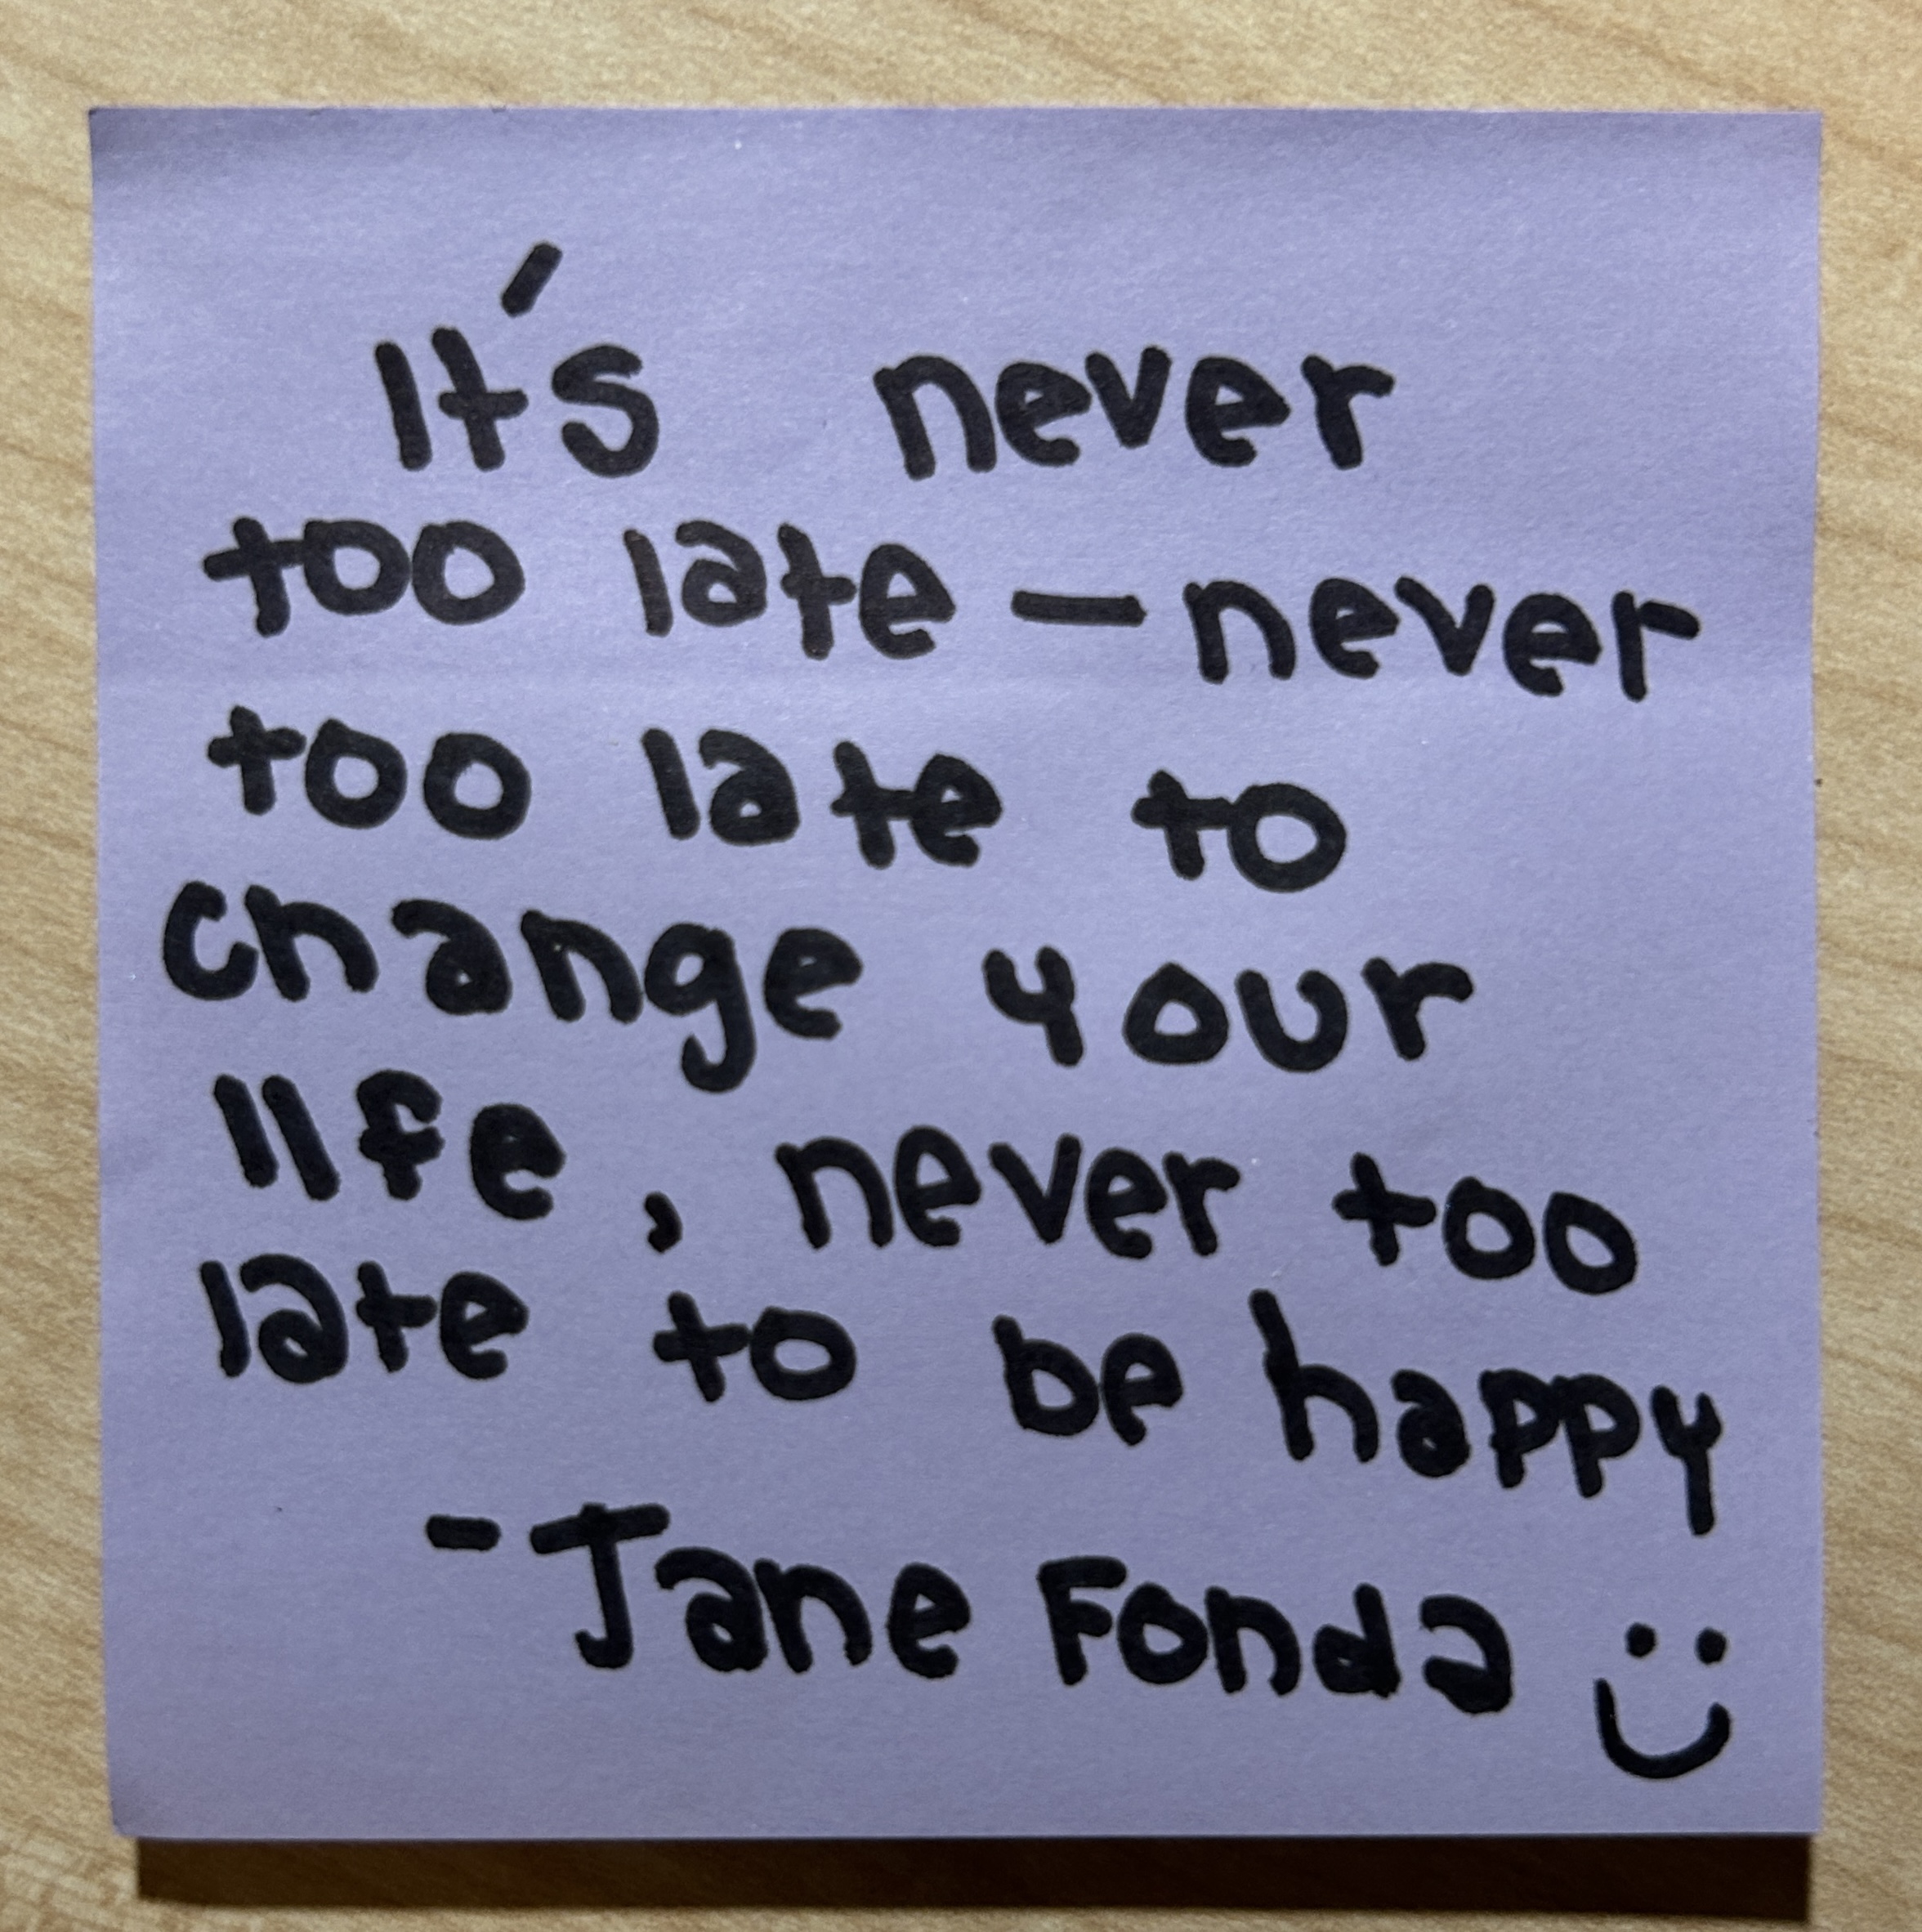 It's never
too late — never
too late to
change your
life, never too
late to be happy
- Jane Fonda